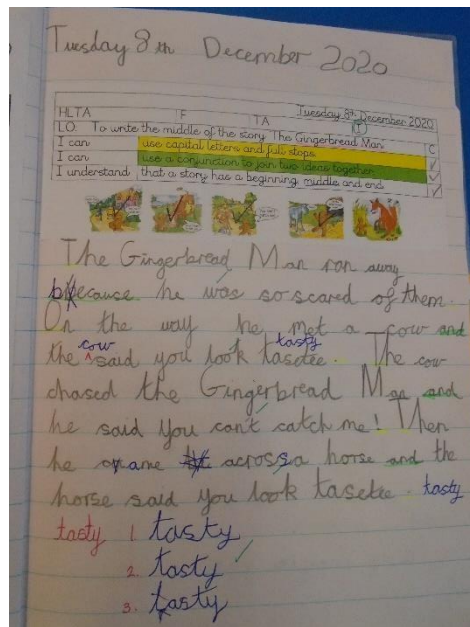 Tuesday 8th December 2020
HLTA F TA Tuesday 8th December 2020
LO. To write the middle of the story The Gingerbread Man I
I can use capital letters and full stops C
I can use a conjunction to join two ideas together
I understand that a story has a beginning middle and end
The Gingerbread Man ran away
because he was so scared of them.
On the way he met a cow and
cow tasty
the said you look tasetee. The cow
chased the Gingerbread Man and
he said you can't catch me! Then
he came across a horse and the
horse said you look tasetee. tasty
tasty 1. tasty
2. tasty
3. tasty